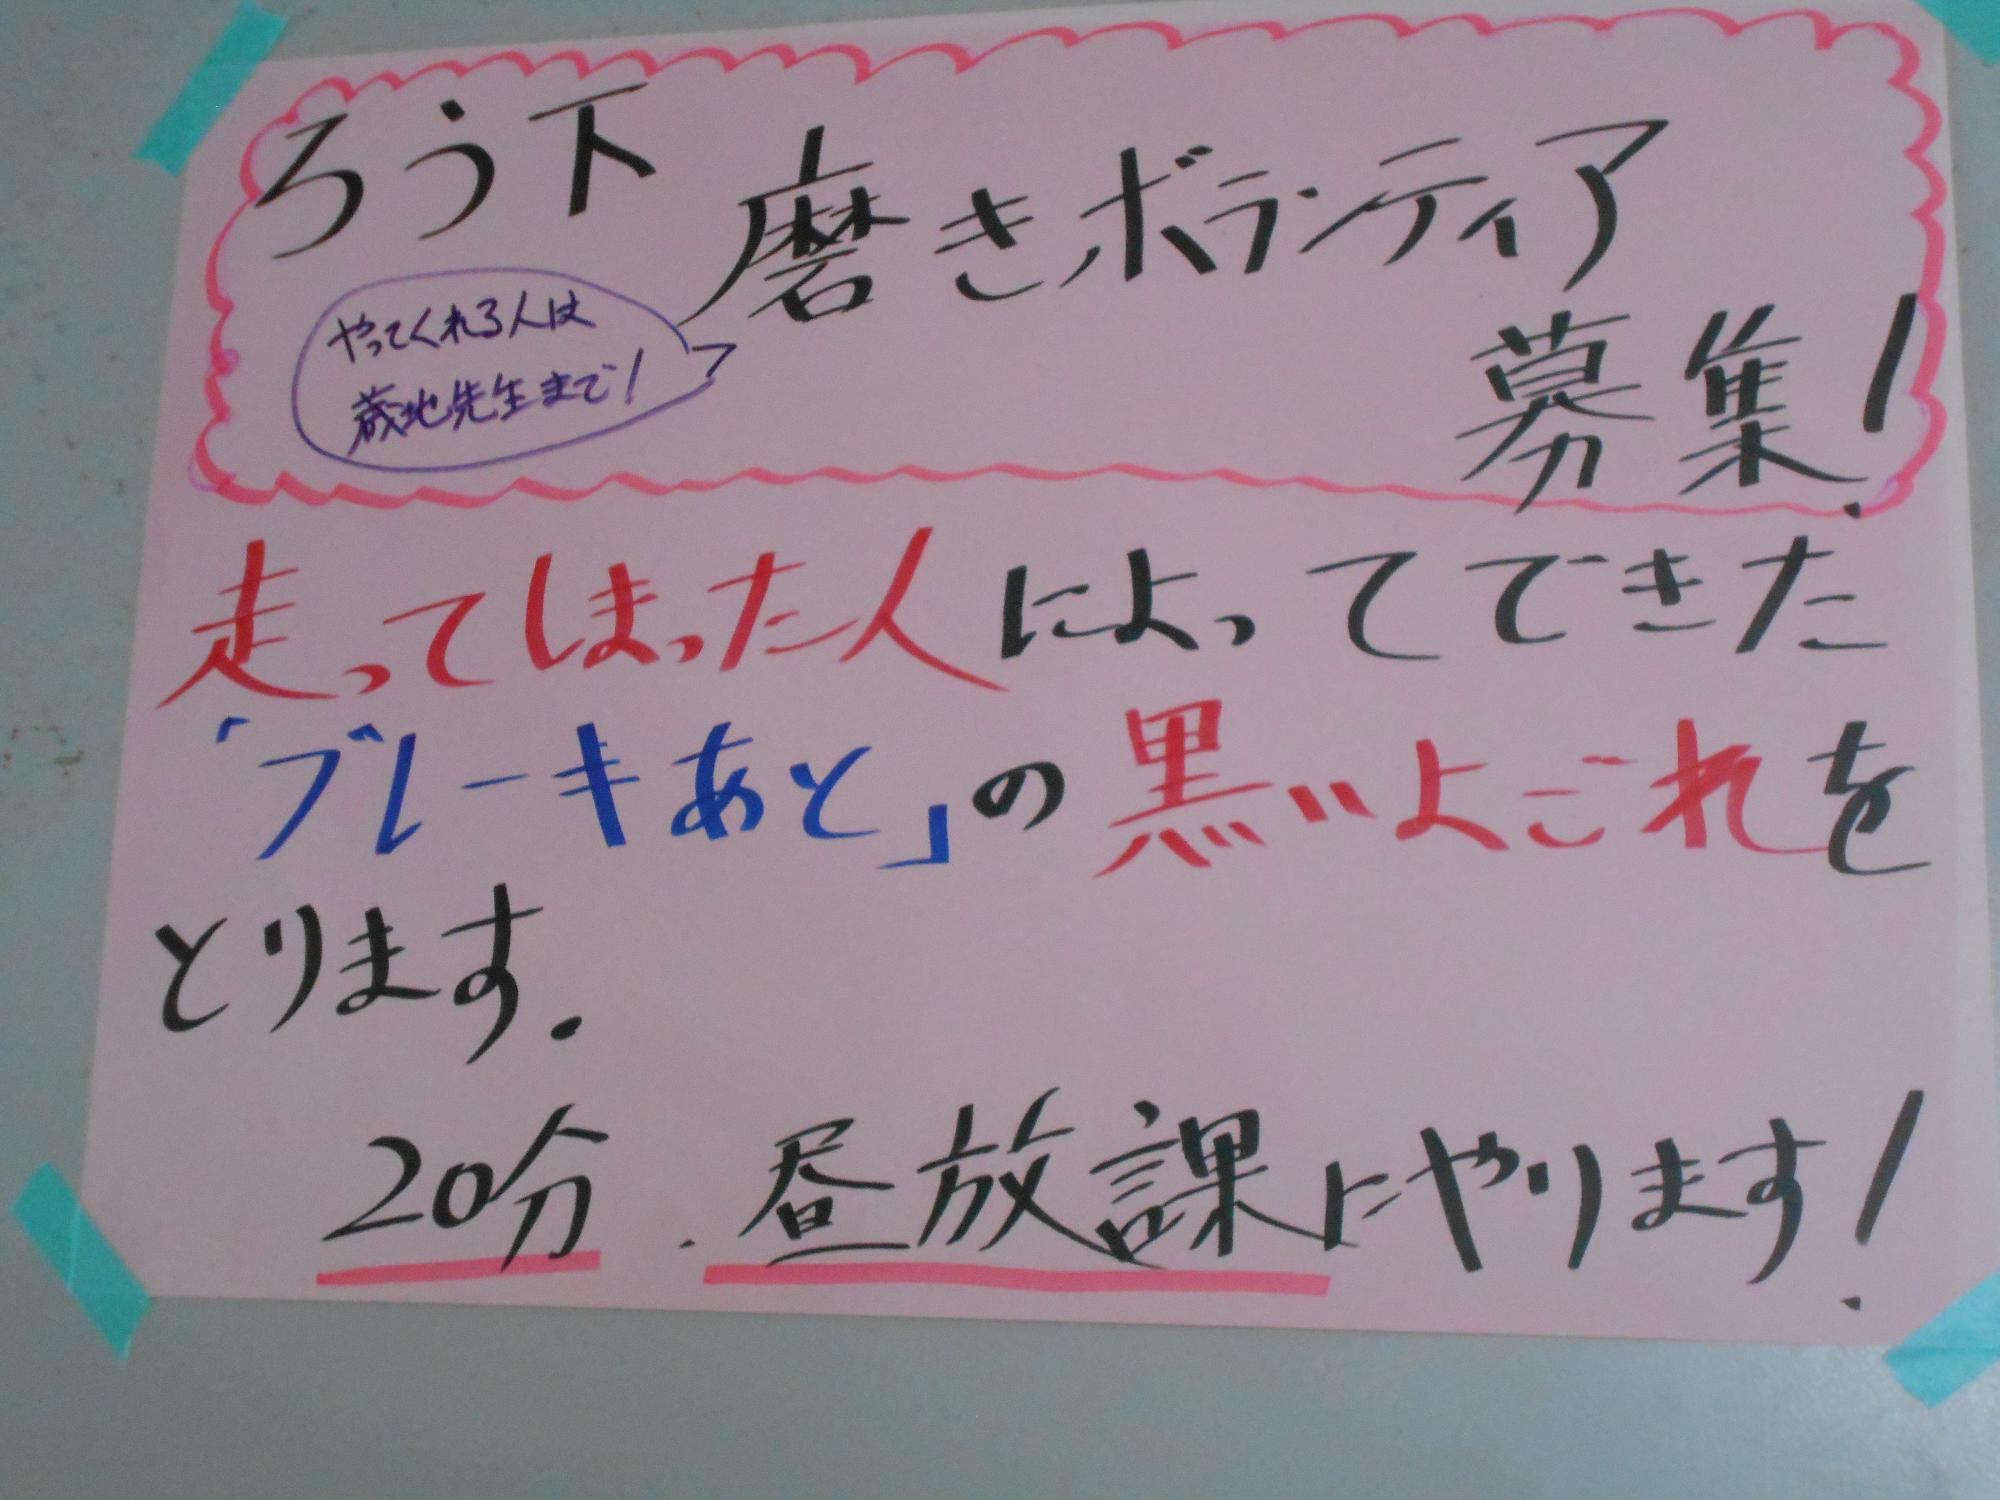 ろう下
磨きボランティア
募集!
やってくれる人は
蔵地先生まで!
走ってしまった人によってできた
「ブレーキあと」の黒いよごれを
とります.
20分.昼放課にやります!